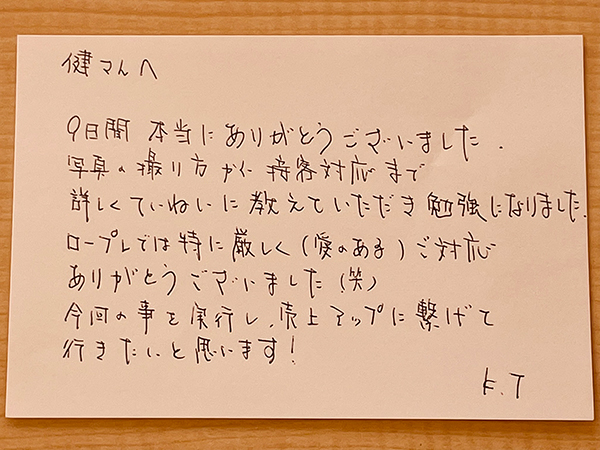 健さんへ
9日間 本当にありがとうございました.
写真の撮り方から接客対応まで
詳しくていねいに教えていただき勉強になりました.
ロープレでは特に厳しく(愛のある)ご対応
ありがとうございました(笑)
今回の事を実行し、売上アップに繋げて
行きたいと思います!
K.T